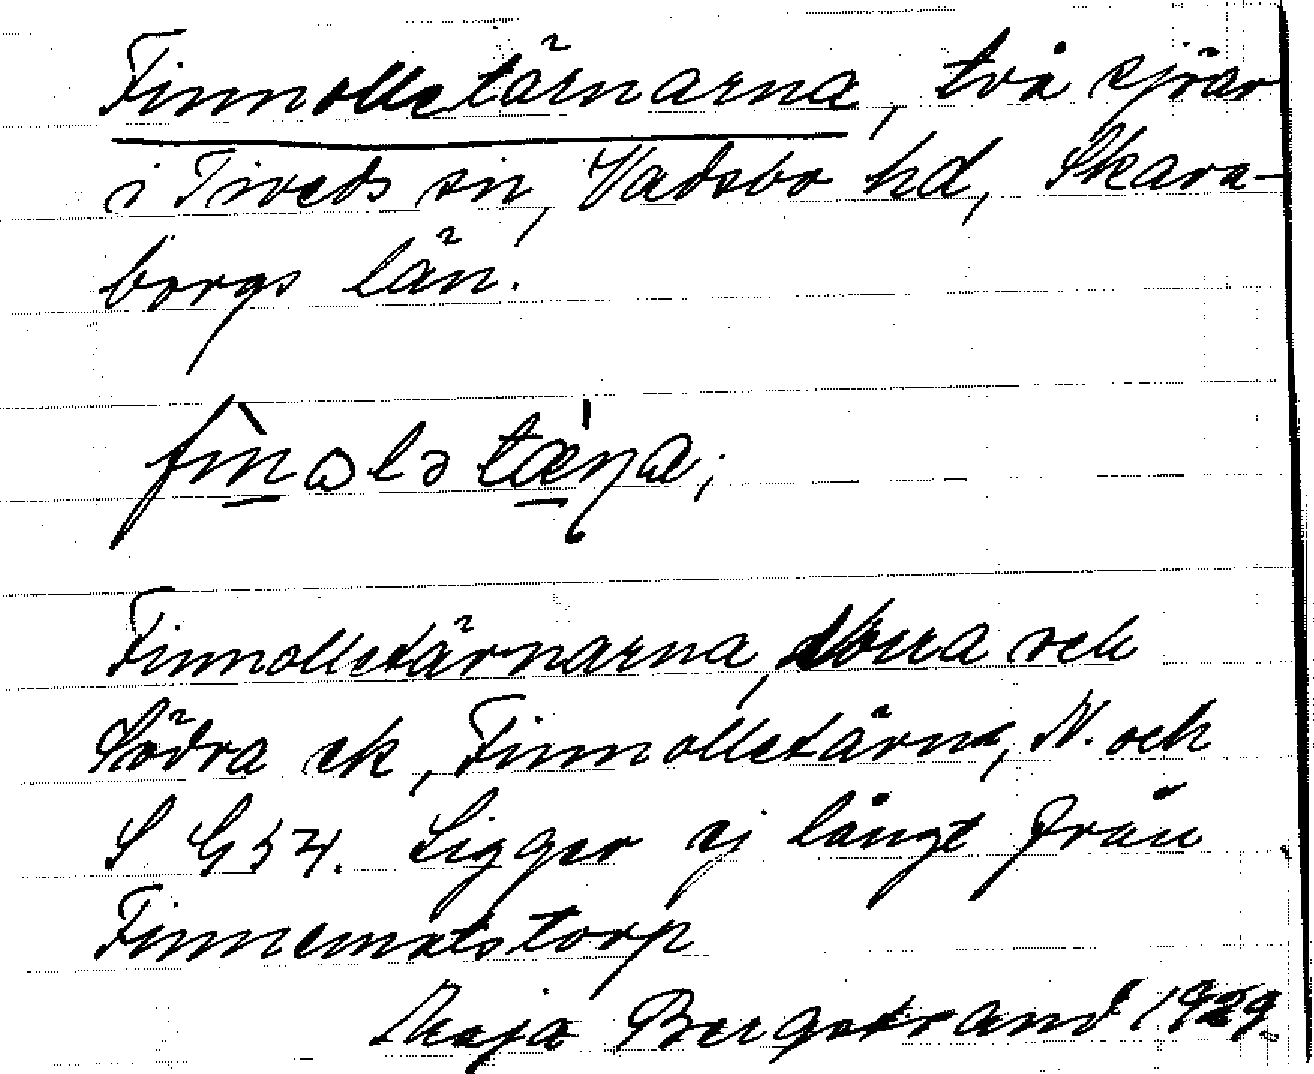 Finnolletärnarna, två sjöar
i Tiveds sn, Vadsbo hd, Skara-
borgs län.
fìnɷlətæ̍ṇa;
Finnolletärnarna, Norra och
Södra ek, Finnolletärna, N. och
S G54. Ligger ej långt från
Finnematstorp
Maja Bergstrand 1929